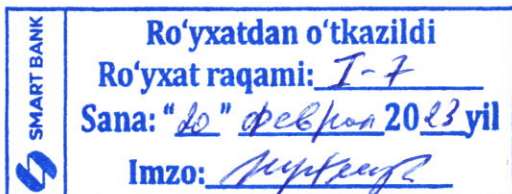 SMART BANK
Ro‘yxatdan o‘tkazildi
Ro‘yxat raqami: I-7
Sana: "20" феврал 2023 yil
Imzo: